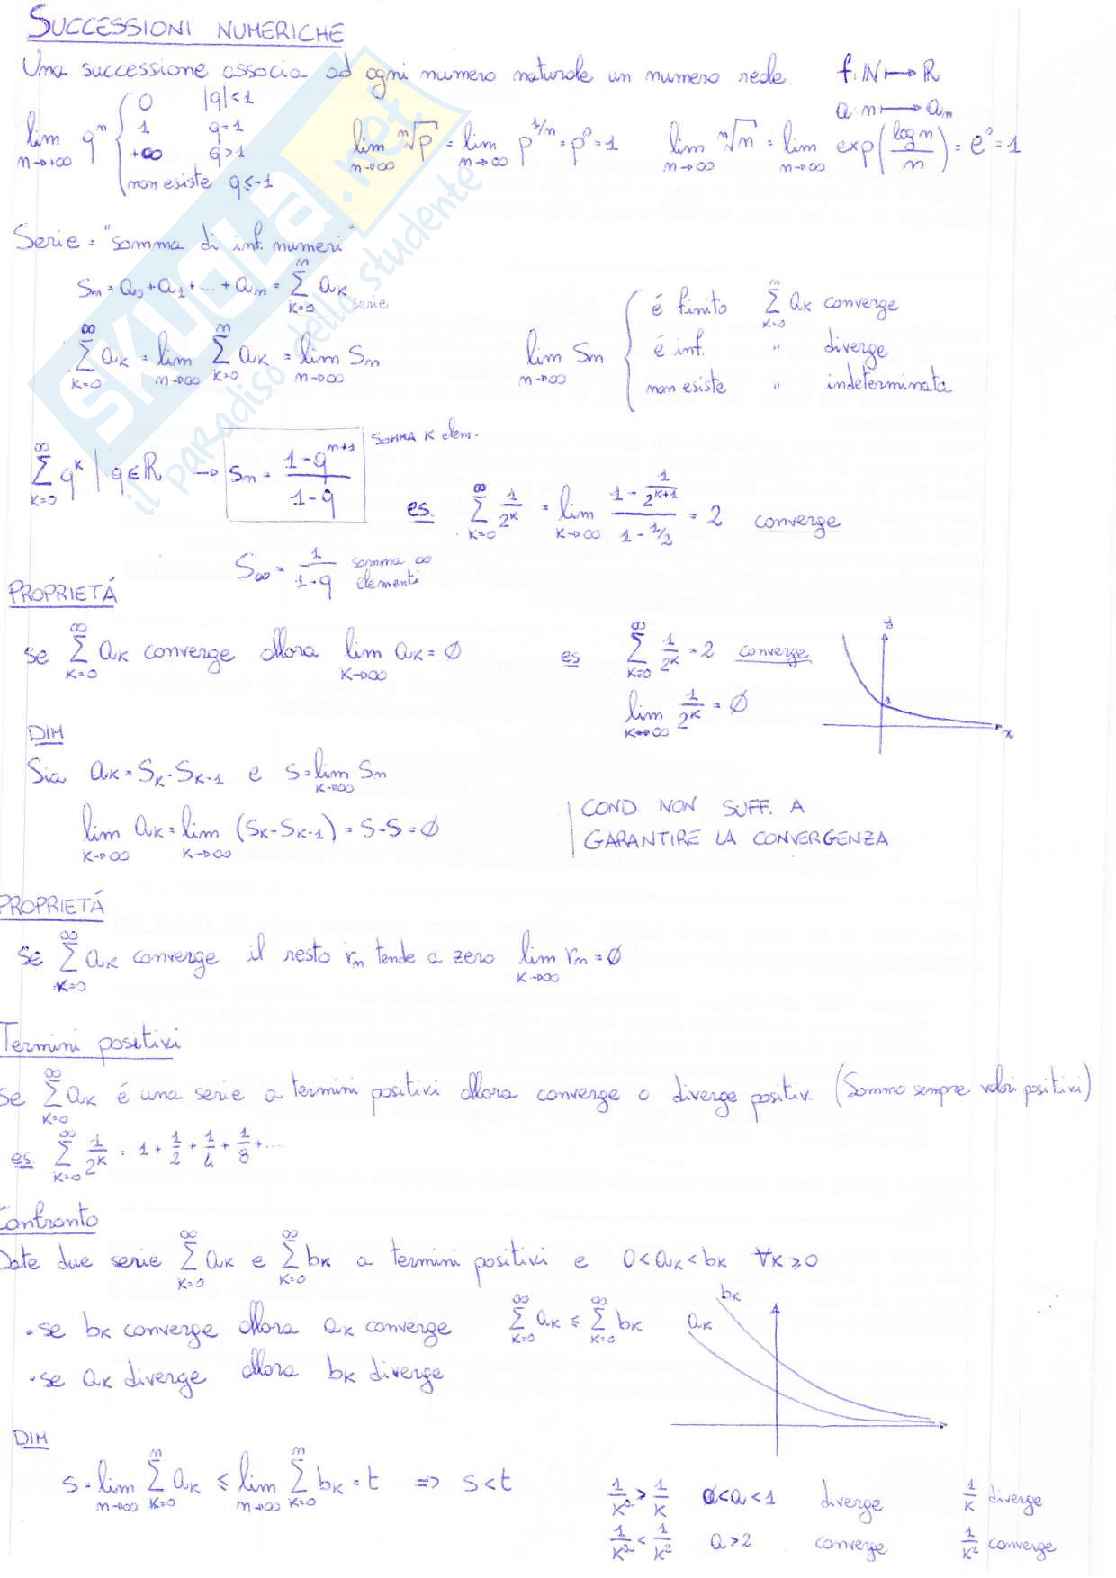 SUCCESSIONI NUMERICHE
Una successione associa ad ogni numero naturale un numero reale. f: ℕ ⟼ ℝ
a: n ⟼ aₙ
lim n→+∞ qⁿ { 0 |q|<1
1 q=1
+∞ q>1
non esiste q≤-1
lim n→∞ ⁿ√p = lim n→∞ p^(1/n) = p⁰ = 1 lim n→∞ ⁿ√n = lim n→∞ exp(log n / n) = e⁰ = 1
Serie = "somma di inf. numeri"
Sₙ = a₀ + a₁ + ... + aₙ = ∑ k=0 n aₖ serie
∑ k=0 ∞ aₖ = lim n→∞ ∑ k=0 n aₖ = lim n→∞ Sₙ
lim n→∞ Sₙ { é finito ∑ k=0 n aₖ converge
é inf. " diverge
non esiste " indeterminata
∑ k=0 ∞ qᵏ | q∈ℝ → Sₙ = (1-qⁿ⁺¹)/(1-q) SOMMA K elem.
es. ∑ k=0 ∞ 1/2ᵏ = lim k→∞ (1 - 1/2ᵏ⁺¹)/(1 - 1/2) = 2 converge
S∞ = 1/(1-q) somma ∞ elementi
PROPRIETÁ
se ∑ k=0 ∞ aₖ converge allora lim k→∞ aₖ = ∅ es ∑ k=0 ∞ 1/2ᵏ = 2 converge
lim k→∞ 1/2ᵏ = ∅
y
1
x
DIM
Sia aₖ = Sₖ - Sₖ₋₁ e s = lim k→∞ Sₙ
lim k→∞ aₖ = lim k→∞ (Sₖ - Sₖ₋₁) = S - S = ∅
COND NON SUFF. A
GARANTIRE LA CONVERGENZA
PROPRIETÁ
Se ∑ k=0 ∞ aₖ converge il resto rₙ tende a zero lim k→∞ rₙ = ∅
Termini positivi
Se ∑ k=0 ∞ aₖ é una serie a termini positivi allora converge o diverge positiv. (Sommo sempre valori positivi)
es. ∑ k=0 ∞ 1/2ᵏ = 1 + 1/2 + 1/4 + 1/8 + ...
Confronto
Date due serie ∑ k=0 ∞ aₖ e ∑ k=0 ∞ bₖ a termini positivi e 0<aₖ<bₖ ∀k≥0
· se bₖ converge allora aₖ converge ∑ k=0 ∞ aₖ ≤ ∑ k=0 ∞ bₖ
· se aₖ diverge allora bₖ diverge
bₖ
aₖ
DIM
S = lim n→∞ ∑ k=0 n aₖ ≤ lim n→∞ ∑ k=0 n bₖ = t ⇒ S<t
1/kᵃ > 1/k 0<a<1 diverge 1/k diverge
1/kᵃ < 1/k² a>2 converge 1/k² converge
SKUOLA.net
il paradiso dello studente